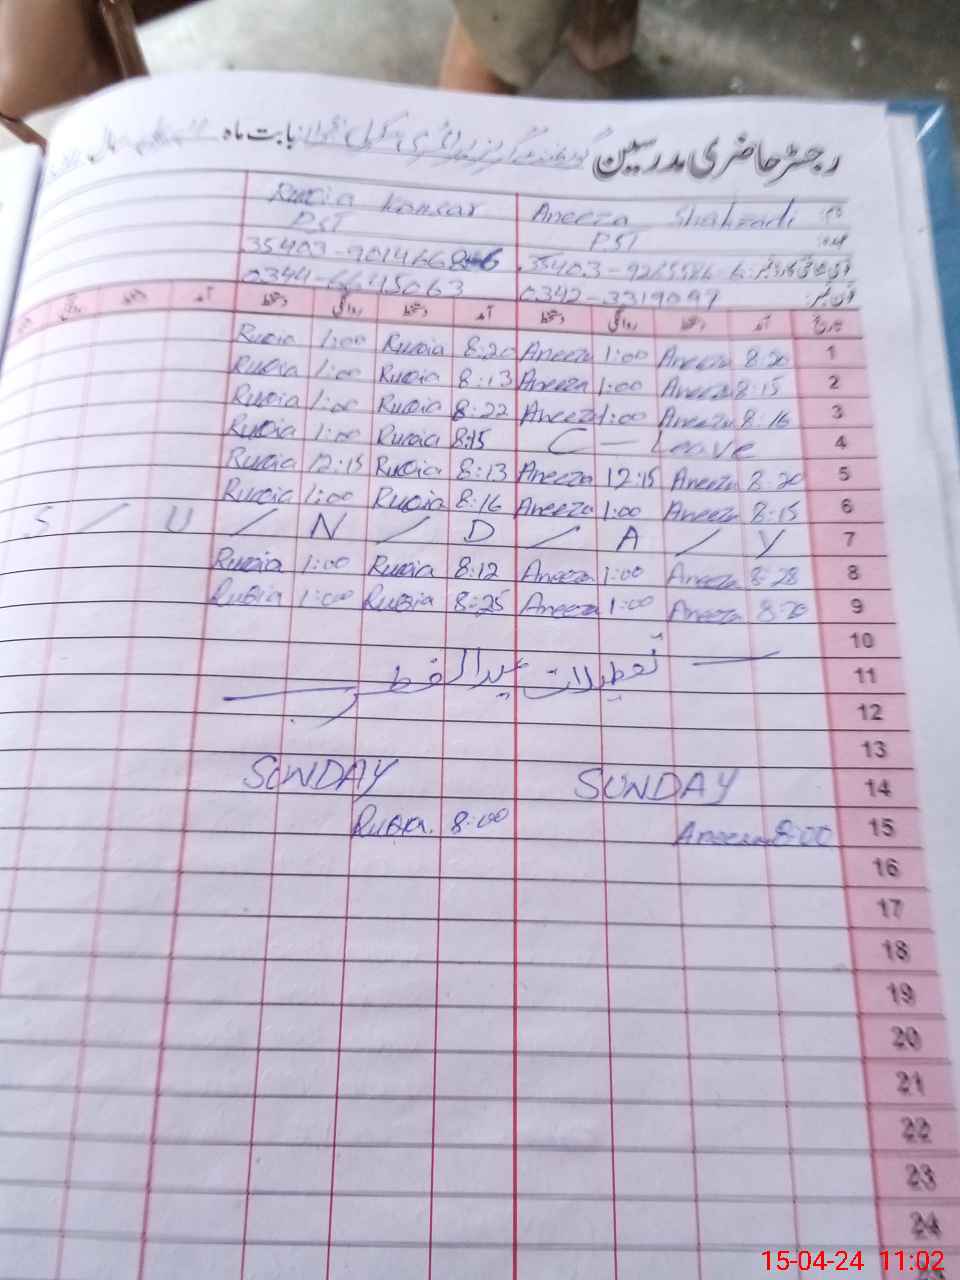 رجسٹر حاضری مدرسین بابت ماہ
Aneeza Shahzadi Rubia Kansar
PST PST
35403-9014668
0342-3319097 0344-6645063
تاریخ آمد دستخط روانگی دستخط آمد دستخط روانگی دستخط آمد
1 8:20 Aneeza 1:00 Aneeza 8:20 Rubia 1:00 Rubia
2 8:15 Aneeza 1:00 Aneeza 8:13 Rubia 1:00 Rubia
3 8:16 Aneeza 1:00 Aneeza 8:22 Rubia 1:00 Rubia
4 C — Leave 8:15 Rubia 1:00 Rubia
5 8:20 Aneeza 12:15 Aneeza 8:13 Rubia 12:15 Rubia
6 8:15 Aneeza 1:00 Aneeza 8:16 Rubia 1:00 Rubia
7 S / U / N / D / A / Y
8 8:28 Aneeza 1:00 Aneeza 8:12 Rubia 1:00 Rubia
9 8:20 Aneeza 1:00 Aneeza 8:25 Rubia 1:00 Rubia
10
11 تعطیلات عیدالفطر
12
13
14 SUNDAY SUNDAY
15 8:00 Aneeza 8:00 Rubia
16
17
18
19
20
21
22
23
24
15-04-24 11:02